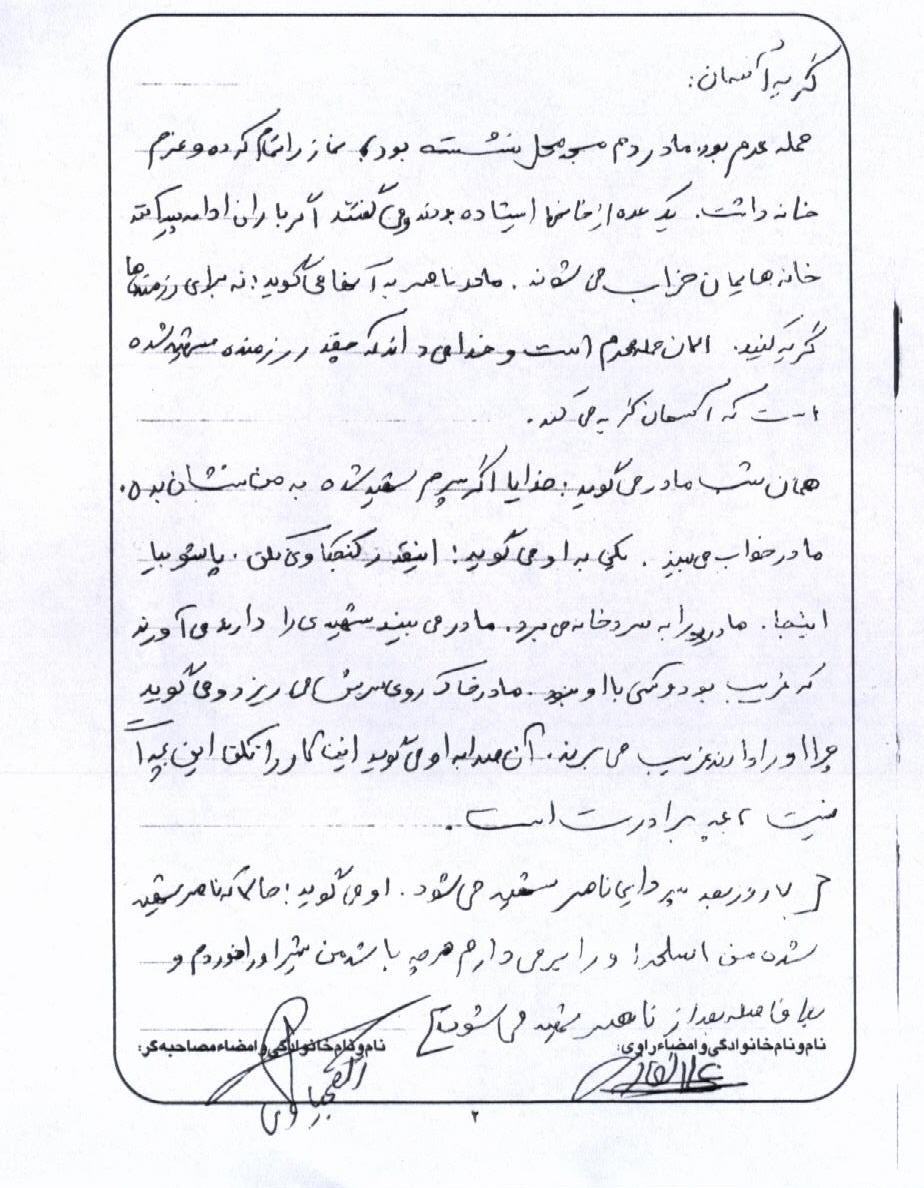 گریه آسمان:
حمله محرم بود، مادر دم مسجد محل نشسته بود، نماز را تمام کرده و عزم
خانه داشت. یک عده از خانمها ایستاده بودند و می گفتند اگر باران ادامه پیدا کند
خانه هایمان خراب می شوند. مادر ناصر به آنها می گوید: نه برای رزمنده ها
گریه کنید. الان حمله محرم است و خدا می داند که چقدر رزمنده شهید شده
است که آسمان گریه می کند.
همان شب مادر می گوید: خدایا اگر پسرم شهید شده به من نشان بده.
مادر خواب می بیند. یکی به او می گوید: اینقدر کنجکاوی نکن. پاشو بیا
اینجا. مادر را به سردخانه می برد. مادر می بیند شهیدی را دارند می آورند
که غریب بود و کسی با او نبود. مادر خاک روی سرش می ریزد و می گوید
چرا او را دارند غریب می برند. آن صدا به او می گوید اینکار را نکن این بچه ات
نیست، بچه برادرت است.
[۷ روز بعد پسر دایی ناصر شهید می شود. او می گوید: حالا که ناصر شهید
شده من اسلحه او را برمی دارم هرچه باشد من شیر او را خوردم و
با فاصله بعد از ناصر شهید می شود]
نام و نام خانوادگی و امضاء راوی:
نام و نام خانوادگی و امضاء مصاحبه گر:
۲